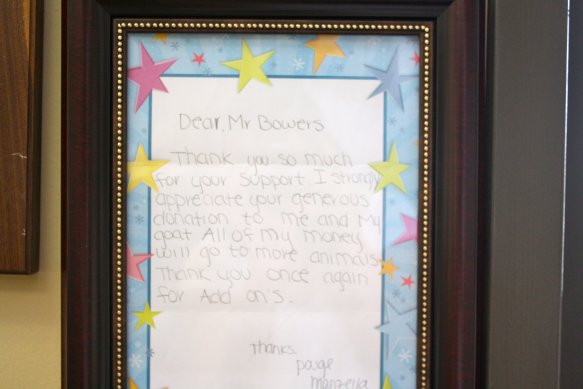 Dear, Mr Bowers
Thank you so much
for your support. I strongly
appreciate your generous
donation to me and My
goat All of my money
will go to more animals.
Thank you once again
for Add on's.
Thanks,
paige